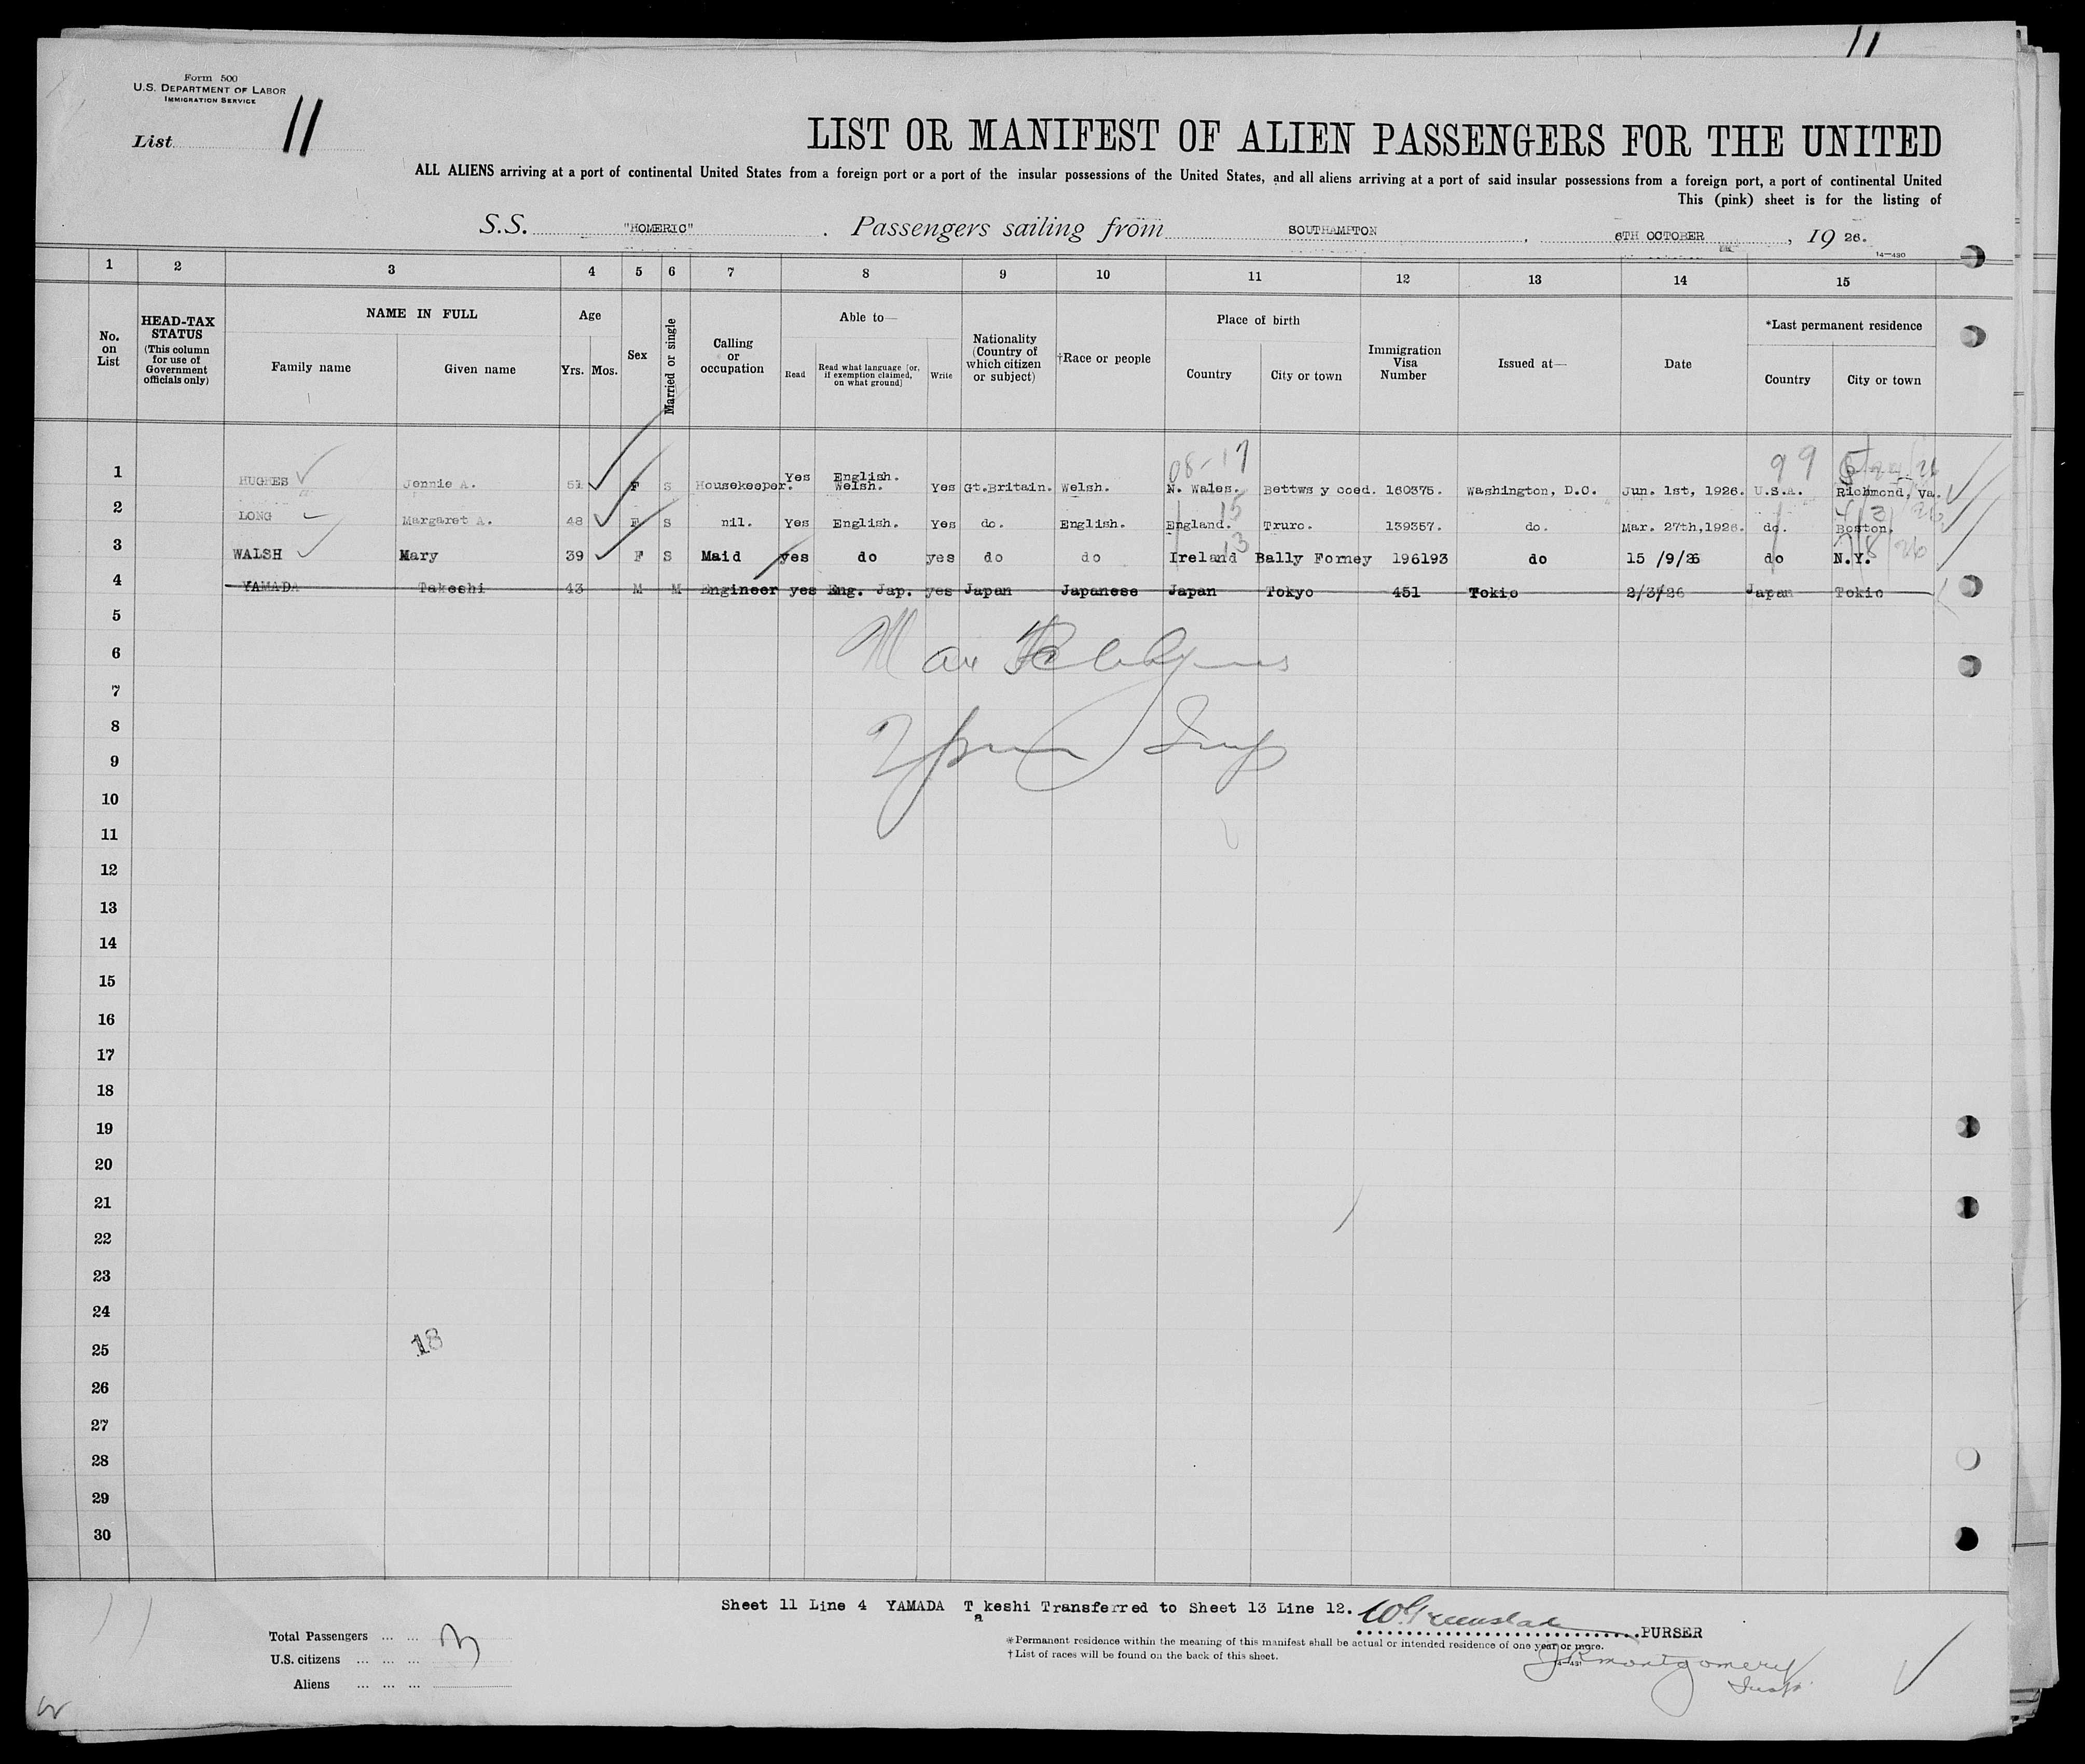 11
Form 500
U.S. DEPARTMENT OF LABOR
IMMIGRATION SERVICE
List 11
LIST OR MANIFEST OF ALIEN PASSENGERS FOR THE UNITED
ALL ALIENS arriving at a port of continental United States from a foreign port or a port of the insular possessions of the United States, and all aliens arriving at a port of said insular possessions from a foreign port, a port of continental United
This (pink) sheet is for the listing of
S.S. "HOMERIC". Passengers sailing from SOUTHAMPTON, 6TH OCTOBER, 19 26.
14—430
1 2 3 4 5 6 7 8 9 10 11 12 13 14 15
No. on List
HEAD-TAX STATUS (This column for use of Government officials only)
NAME IN FULL
Family name Given name
Age
Yrs. Mos.
Sex
Married or single
Calling or occupation
Able to—
Read
Read what language [or, if exemption claimed, on what ground]
Write
Nationality (Country of which citizen or subject)
†Race or people
Place of birth
Country City or town
Immigration Visa Number
Issued at—
Date
*Last permanent residence
Country City or town
08-17 99
1 HUGHES Jennie A. 51 F S Housekeeper. Yes English. Welsh. Yes Gt.Britain. Welsh. N. Wales. Bettws y coed. 160375. Washington, D.C. Jun. 1st, 1926. U.S.A. Richmond, Va.
15 4/3/26
2 LONG Margaret A. 48 F S nil. Yes English. Yes do. English. England. Truro. 139357. do. Mar. 27th,1926. do. Boston.
13 7/8/26
3 WALSH Mary 39 F S Maid yes do yes do do Ireland Bally Forney 196193 do 15 /9/26 do N.Y.
4 YAMADA Takeshi 43 M M Engineer yes Eng. Jap. yes Japan Japanese Japan Tokyo 451 Tokio 2/3/26 Japan Tokio
5
6
7
8
9
10
11
12
13
14
15
16
17
18
19
20
21
22
23
24
25
18
26
27
28
29
30
Sheet 11 Line 4 YAMADA Takeshi Transferred to Sheet 13 Line 12. W. Greenslade PURSER
Total Passengers ... ... 3
U.S. citizens ... ... ...
Aliens ... ... ...
*Permanent residence within the meaning of this manifest shall be actual or intended residence of one year or more.
†List of races will be found on the back of this sheet.
Montgomery
Insp.